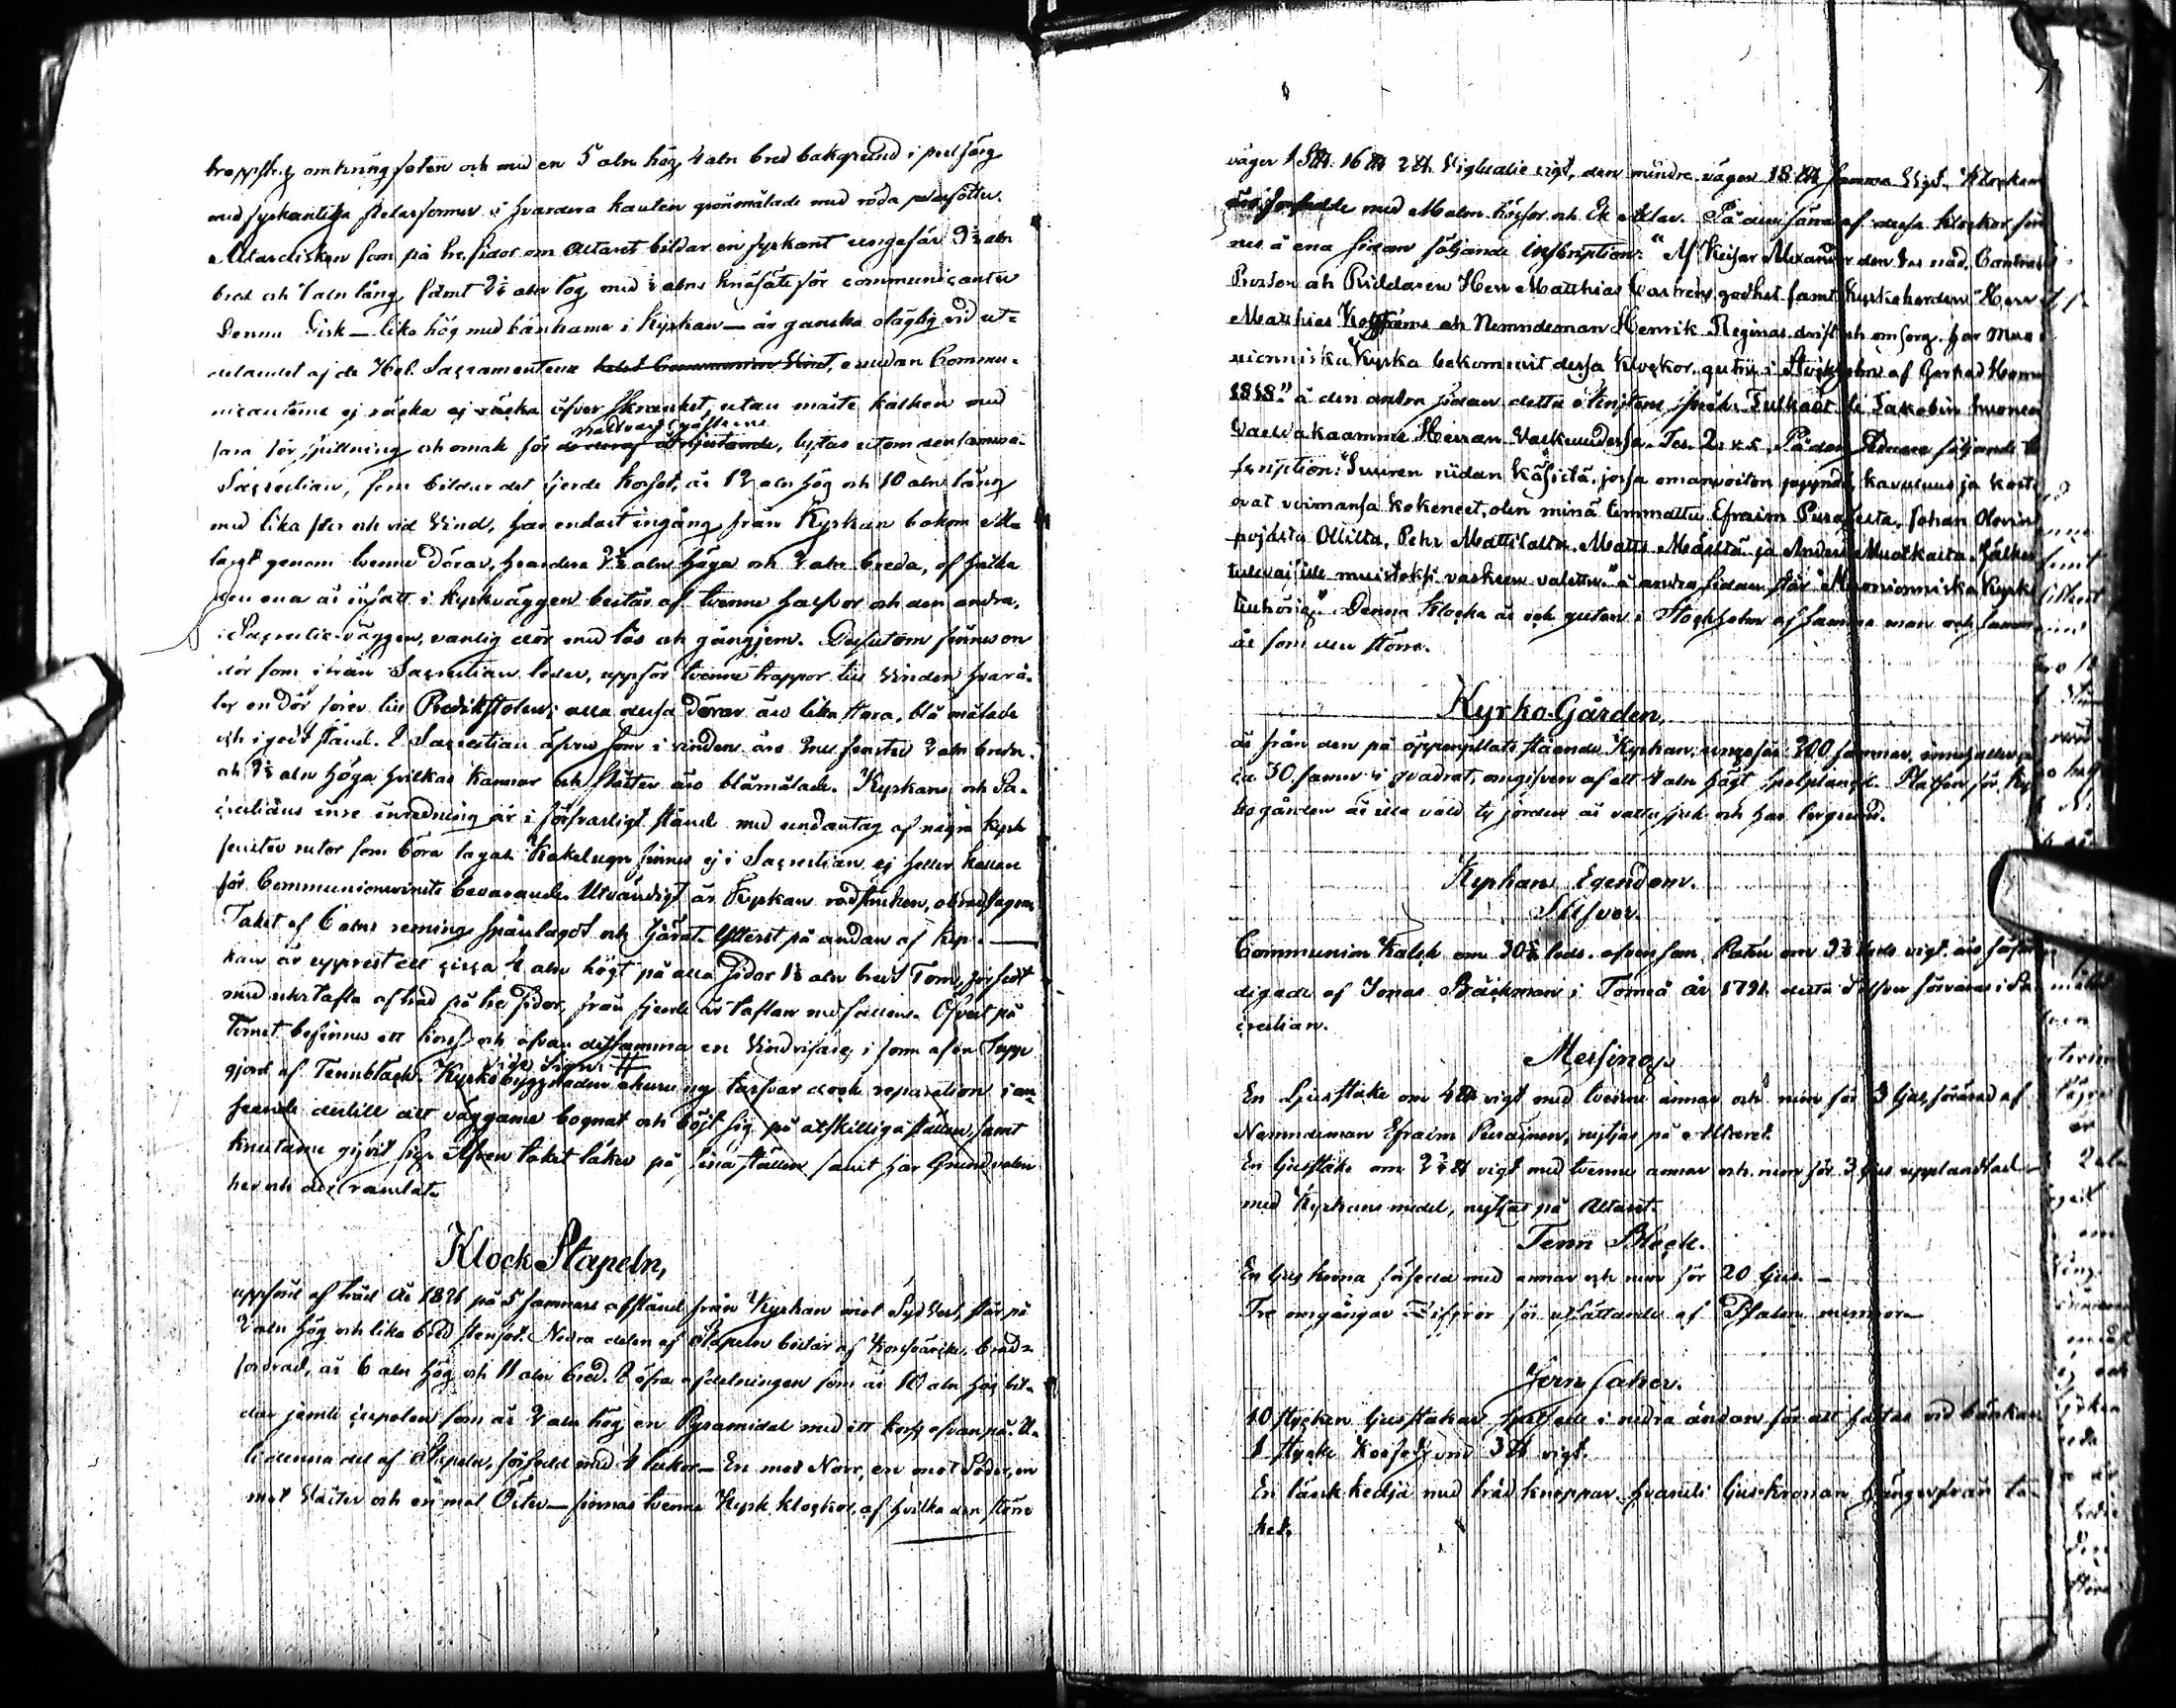 omkring foten och med en 5 aln hög 4 aln bred bakgrund i
med fyrkantiga i hvardera kanten grönmålade med röda
Altardisken som på tre sidor om Altaret bildar en fyrkant ungefär aln
bred och aln lång samt aln hög med ½ alns knäfäte för communicanter
Denna Disk – lika hög med bänkarne i Kyrkan – är ganska olägligt vid ut-
delandet af de Hel. Sacramentena emedan Commu-
nicanterne ej räcka ej räcka öfver Skranket, utan måste kalken med
fara för spillning och omak för Nattvardsgästerne, lyftas utom densamma
Sacrestian, som bildar det fjerde Korset, är aln hög och 10 aln lång
med lika stor och vid Vind, har endast ingång från Kyrkan bakom Alta
genom tvenne Dörar, hvardera 3½ aln höga och 2 aln breda, af hvilka
den ena är insatt i kyrkväggen består af tvenne halfvor och den andra,
i Sacrestie-väggen, vanlig dör med lås och gångjern. Dessutom finnes en
dör som ifrån Sacrestian leder, uppför tvenne trappor till Vinden hvarå-
ter en Dör förer till Predikstolen; alla dessa Dörar äro lika stora, blå målade
och i godt stånd. I Sacrestian äfven som i vinden äro fenster 2 aln breda
och aln höga hvilkas karmar och äro blåmålade. Kyrkans och Sa-
crestians inre inredning är i försvarligt stånd med undantag af några kyrk
fenster rutor som böra lagas. Kakelugn finnes ej i Sacrestian ej heller
för Communionvinets bevarande. Utvändigt är Kyrkan
Taket af 6 alns resning spånlagdt och tjärat. Ytterst på ändan af Kyr-
kan är upprest ett cirka 4 aln högt på alla sidor 1½ aln bredt Torn, försedt
med urtafla af träd på tre sidor, från fjerde är taflan nedfallen. Öfverst på
Tornet befinnes ett kors och ofvan detsamma en Vindvisare i form af en Tupp
gjord af Tennblæck. Kyrkobyggnaden ehuru ny tarfvar dock reparation i an-
seende dertill att väggarne bognat och böjt sig på åtskilliga ställen, samt
knutarne gifvit sig. Äfven taket läker på sina ställen samt har Grundvalen
her och der ramlat.
Klock Stapeln,
uppförd af träd År 1821 på 5 famnars afstånd från Kyrkan mot Sydvest, står på
2 aln hög och lika bred stenfot. Nedra delen af Stapeln består af Korsvärke, bräd-
fordrad, är 6 aln hög och 11 aln bred. Öfra afdelningen som är 10 aln hög bil-
dar jemte cupolen som är 2 aln hög en Pyramidal med ett kors ofvanpå. U-
ti denna del af Stapeln, försedd med 4 luckor – En mot Norr, en mot Söder, en
mot Väster och en mot Öster – finnas tvenne Kyrk klockor, af hvilka den större
väger 1 16 2 Victualie vigt, den mindre väger 18 samma Vigt. Klockorna
äro försedde med Malm hössor och Ek Axlar. På den större af dessa klockor fin
nes å ena sidan följande Inscription: "Af Keisar Alexander den nåd, Contracts
Prosten och Riddaren Herr Matthias Castréns godhet samt Kyrkoherden Herr
Mathias och Nemndeman Henrik Reginas drift och omsorg har Muo
nionniska Kyrka bekommit dessa klockor, gutne i Stockholm af Gerhad Horner
1818." å den andra sidan detta Tulkaat
Vaeldakaamme Herran Valkeudessa. Jes. 2: v. 5. På den Mindre följande In
scription: "Suuren riidan käsistä, jossa omanvoiton pyyndö, kavaluus ja koste
ovat voimansa kokeneet, olen minä temmattu Efraim Purasesta, Johan Olovin
pojista Ollilta, Pehr Mattilalta, Matts Mäeltä ja Anders Muotkasta. Jälkeen
tulevaisille muistoksi vaskeen valettu." å andra sidan står "Muonionniska Kyrka
tillhörig." Denna Klocka är och gjuten i Stockholm af samma man och samma
år som den större.
Kyrko-Gården,
är från den på öppenplats stående Kyrkan, ungefär 200 famnar, innehåller
ca 30 famnar i quadrat, omgifven af ett 4 aln högt Plattsen för Kyr
kogården är illa vald ty jorden är vattusjuk och har bergrund.
Kyrkans Egendom.
Silfver.
Communion Kalk om 30½ lods, äfvensom Patén om lods vigt äro förfär
digade af Jonas Bäckman i Torneå år 1791. detta Silfver förvaras i Sa-
crestian.
Messing
En Ljusstake om 4 vigt med tvenne armar och rum för 3 ljus, förärad af
Nemndeman Efraim Purainen, nyttjas på Altaret.
En ljusstake om vigt med tvenne armar och rum för 3 ljus upphandlad
med Kyrkans medel, nyttjas på Altaret.
Tenn Bleck.
En ljus krona försedd med armar och rum för 20 ljus. –
Tre omgångar Ziffror för utsättande af Psalm nummror –
Jern saker.
10 stycken ljusstakar i nedra ändan för att fästas vid bänkar
1 stycke om 3 vigt.
En länk kedja med träd knoppar hvaruti ljus-kronan hänger från ta-
ket.